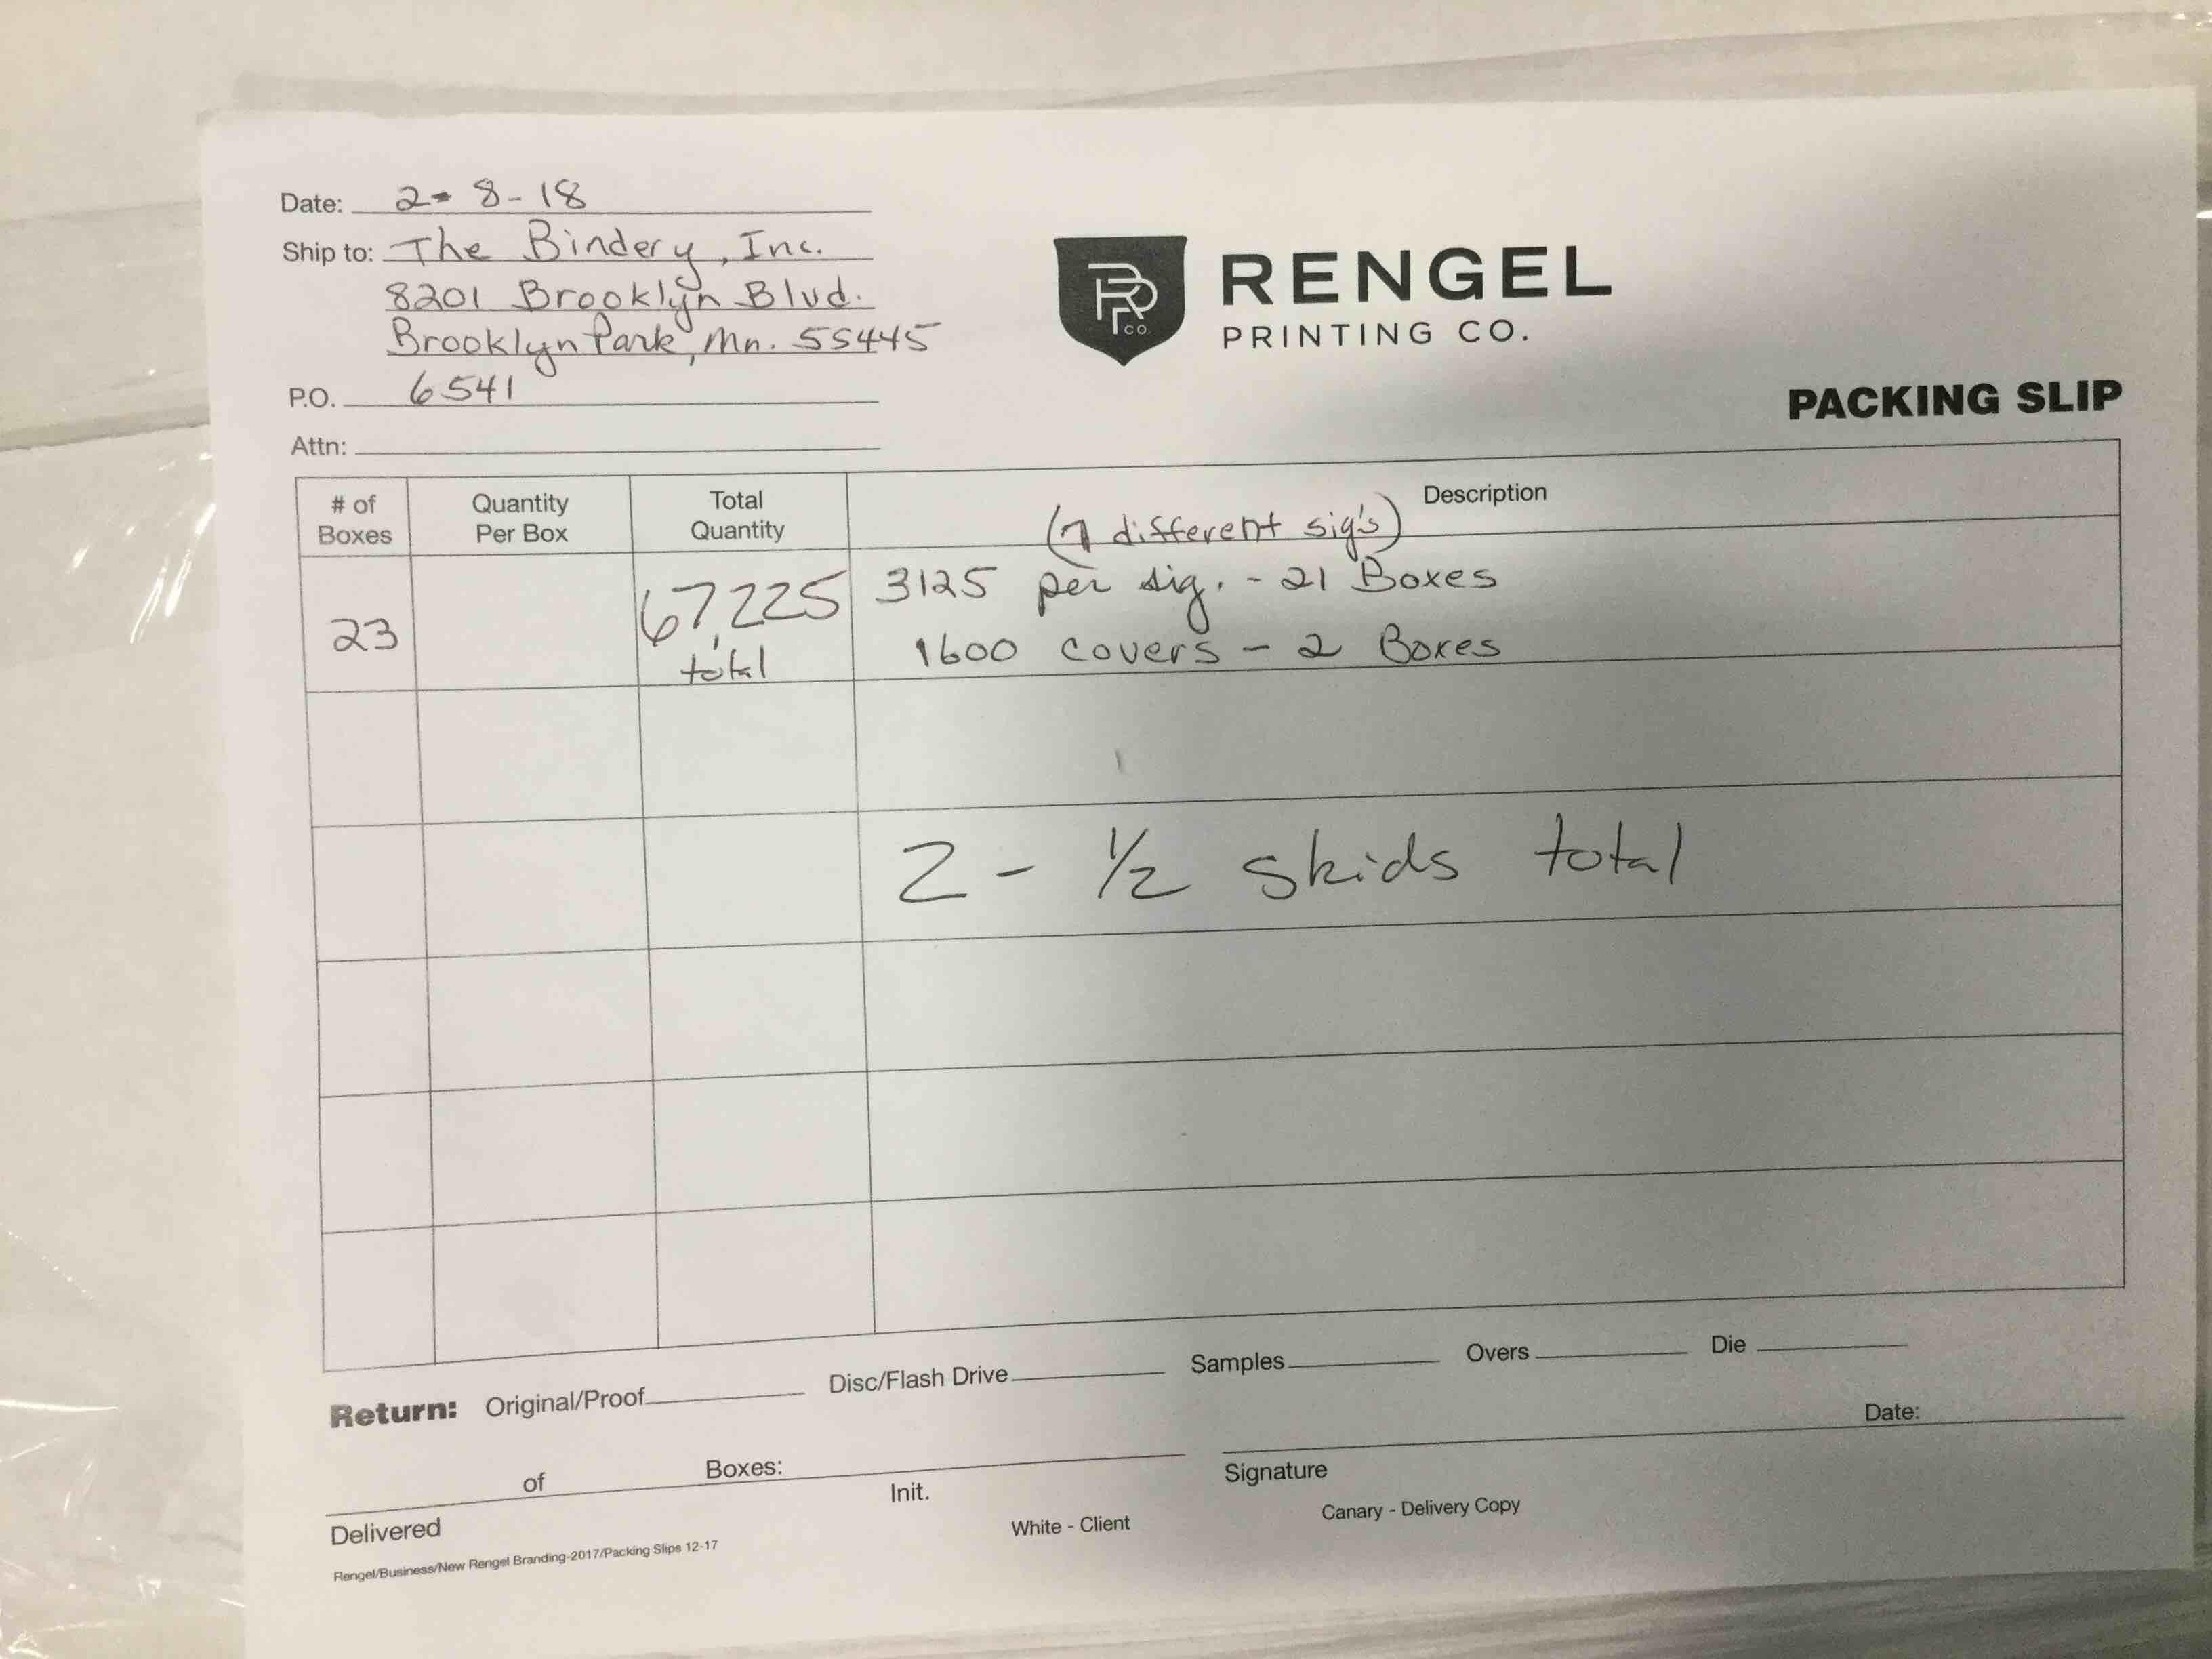 Date: 2-8-18
Ship to: The Bindery, Inc.
8201 Brooklyn Blvd.
Brooklyn Park, Mn. 55445
P.O. 6541
Attn:
PR CO.
RENGEL
PRINTING CO.
PACKING SLIP
# of Boxes
Quantity Per Box
Total Quantity
Description
(7 different sig's)
23
67,225 total
3125 per sig. - 21 Boxes
1600 covers - 2 Boxes
2 - 1/2 skids total
Return: Original/Proof Disc/Flash Drive Samples Overs Die
of Boxes: Date:
Delivered Init. Signature
White - Client Canary - Delivery Copy
Rengel/Business/New Rengel Branding-2017/Packing Slips 12-17